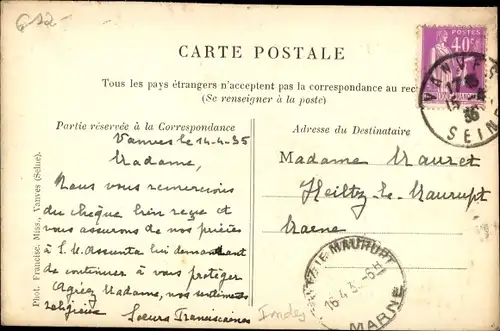 612-
CARTE POSTALE
Tous les pays étrangers n'acceptent pas la correspondance au rec
(Se renseigner à la poste)
POSTES
40c
VANVES
SEINE
Partie réservée à la Correspondance
Vanves le 14-4-35
Madame,
Nous vous remercions
du chèque bien reçu et
vous assurons de nos prières
à S. M. Assunta lui demandant
de continuer à vous protéger
Agréez Madame, nos sentiments
religieux
Soeurs Franciscaines
Adresse du Destinataire
Madame Mauret
Heiltz-le-Maurupt
Marne
MAURUPT
16-4
MARNE
Phot. Francisc. Miss., Vanves (Seine).